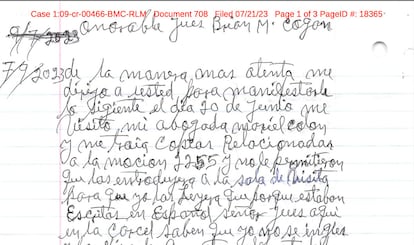 Case 1:09-cr-00466-BMC-RLM Document 708 Filed 07/21/23 Page 1 of 3 PageID #: 18365
7/7/2023 Onorable Jues Brian M. Cogan
7/7/2023 de la manera mas atenta me
dirijo a usted para manifestarle
lo sigiente el dia 20 de Junio me
visito mi abogada mariel colon
y me traia Copias Relacionadas
a la mocion 2255 y no le permitieron
que las introdujera a la sala de visita
para que yo las leyera que porque estaban
Escritas en Español señor Jues aqui
en la Carcel saben que yo no se ingles